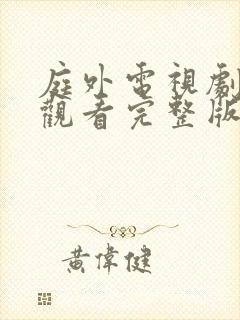 庭外電視劇
觀看完整版
黃偉健